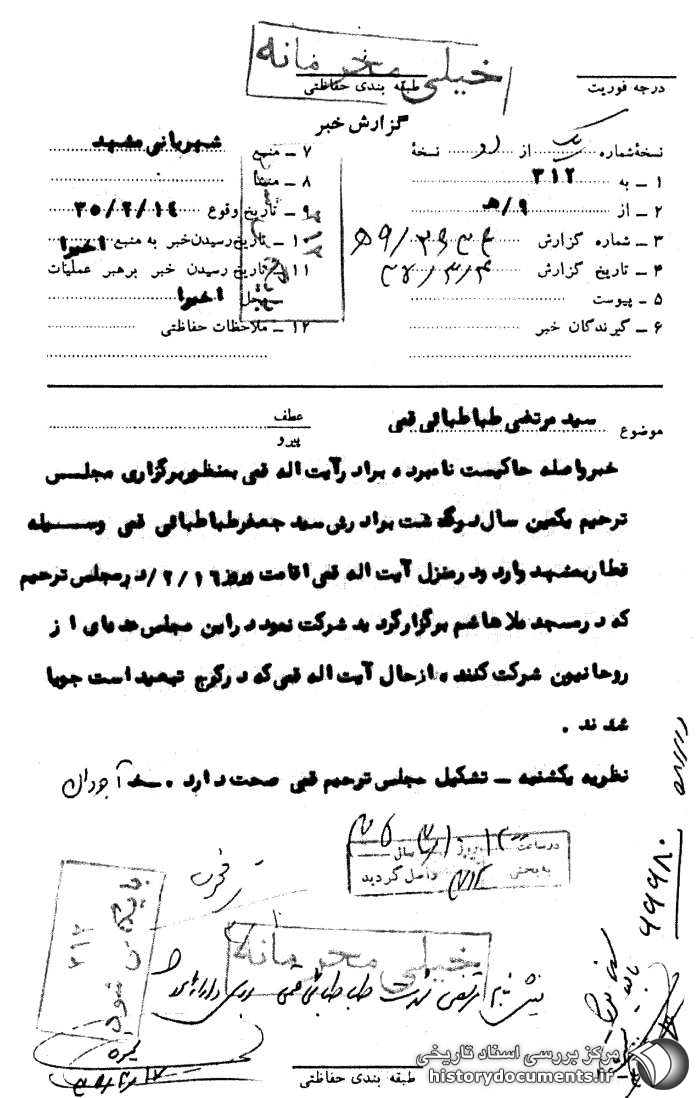 خیلی محرمانه
درجه فوریت
طبقه بندی حفاظتی
گزارش خبر
نسخهٔ شماره یک از دو نسخهٔ
۱ ـ به ۳۱۲
۲ ـ از ۹/هـ
۳ ـ شماره گزارش
۴ ـ تاریخ گزارش
۵ ـ پیوست
۶ ـ گیرندگان خبر
۷ ـ منبع شهربانی مشهد
۸ ـ منشأ
۹ ـ تاریخ وقوع ۳۵/۲/۱۴
۱۰ ـ تاریخ رسیدن خبر به منبع اخیرا
۱۱ ـ تاریخ رسیدن خبر به رهبر عملیات
محل اخیرا
۱۲ ـ ملاحظات حفاظتی
موضوع سید مرتضی طباطبائی قمی
عطف
پیرو
خبر واصله حاکیست نامبرده برادر آیت اله قمی بمنظور برگزاری مجلس
ترحیم یکمین سال درگذشت برادرش سید جعفر طباطبائی قمی وسیله
قطار بمشهد وارد و در منزل آیت اله قمی اقامت و روز ۲/۱۶/ در مجلس ترحیم
که در مسجد ملا هاشم برگزار گردید شرکت نمود در این مجلس عده‌ای از
روحانیون شرکت کننده از حال آیت اله قمی که در کرج تبعید است جویا
شدند .
نظریه یکشنبه ـ تشکیل مجلس ترحیم قمی صحت دارد .
در ساعت
روز
سال
به بخش ۳۱۲ واصل گردید
بایگانی شود
۳۱۲
خیلی محرمانه
طباطبائی قمی
۶۹۹۸۰
طبقه بندی حفاظتی
مرکز بررسی اسناد تاریخی
historydocuments.ir